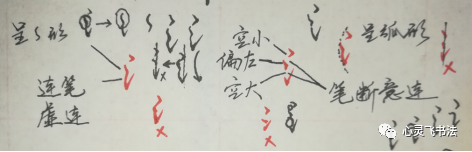 呈S形
连笔
虚连
空小
偏左
空大
呈弧形
笔断意连
心灵飞书法